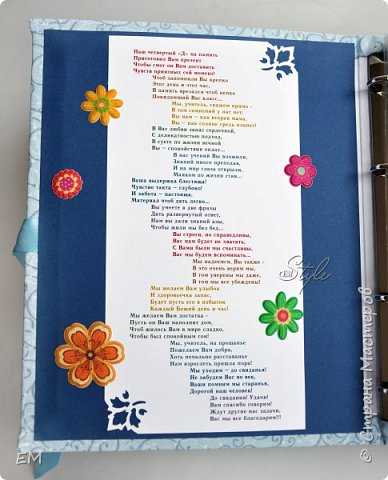 Наш четвертый «Д» на память
Приготовил Вам презент
Чтобы смог он Вам доставить
Чувств приятных сей момент!
Чтоб запомнили Вы крепко
Этот день и этот час,
В память врезался чтоб цепко
Повзрослевший Вас класс...
Мы, учитель, скажем прямо -
В том сомнений у нас нет,
Вы нам – как вторая мама,
Вы – как солнце средь планет!
В Вас любви запас сердечной,
С деликатностью подход,
В суете по жизни вечной
Вы – спокойствия оплот...
В нас учений Вы вложили,
Знаний много преподав,
И на мир глаза открыли,
Маяком по жизни став...
Ваша выдержка блестяща!
Чувство такта – глубоко!
И забота – настояща,
Материал чтоб дать легко...
Вы умеете в две фразы
Дать развернутый ответ,
Нам вы дали знаний азы,
Чтобы жили мы без бед...
Вы строги, но справедливы,
Вас нам будет не хватать,
С Вами были мы счастливы,
Вас мы будем вспоминать...
Мы надеемся, Вы также -
В это очень верим мы,
В том уверены мы даже,
В том мы все убеждены!
Мы желаем Вам улыбок
И здоровья запас,
Будет пусть его в избытке
Каждый Божий день и час!
Мы желаем Вам достатка –
Пусть он Ваш наполнит дом,
Чтоб жилось Вам в мире сладко,
Чтобы был спокойным сон!
Мы, учитель, на прощанье
Пожелаем Вам добра,
Хоть печально расставанье
Нам взрослеть пришла пора!
Мы уходим – до свиданья!
Не забудем Вас во век,
Ваши помним мы старанья,
Дорогой наш человек!
До свидания! Удачи!
Вам спасибо говорим!
Ждут другие нас задачи,
Вас мы все благодарим!!!
Style
ЕМ
© Страна Мастеров